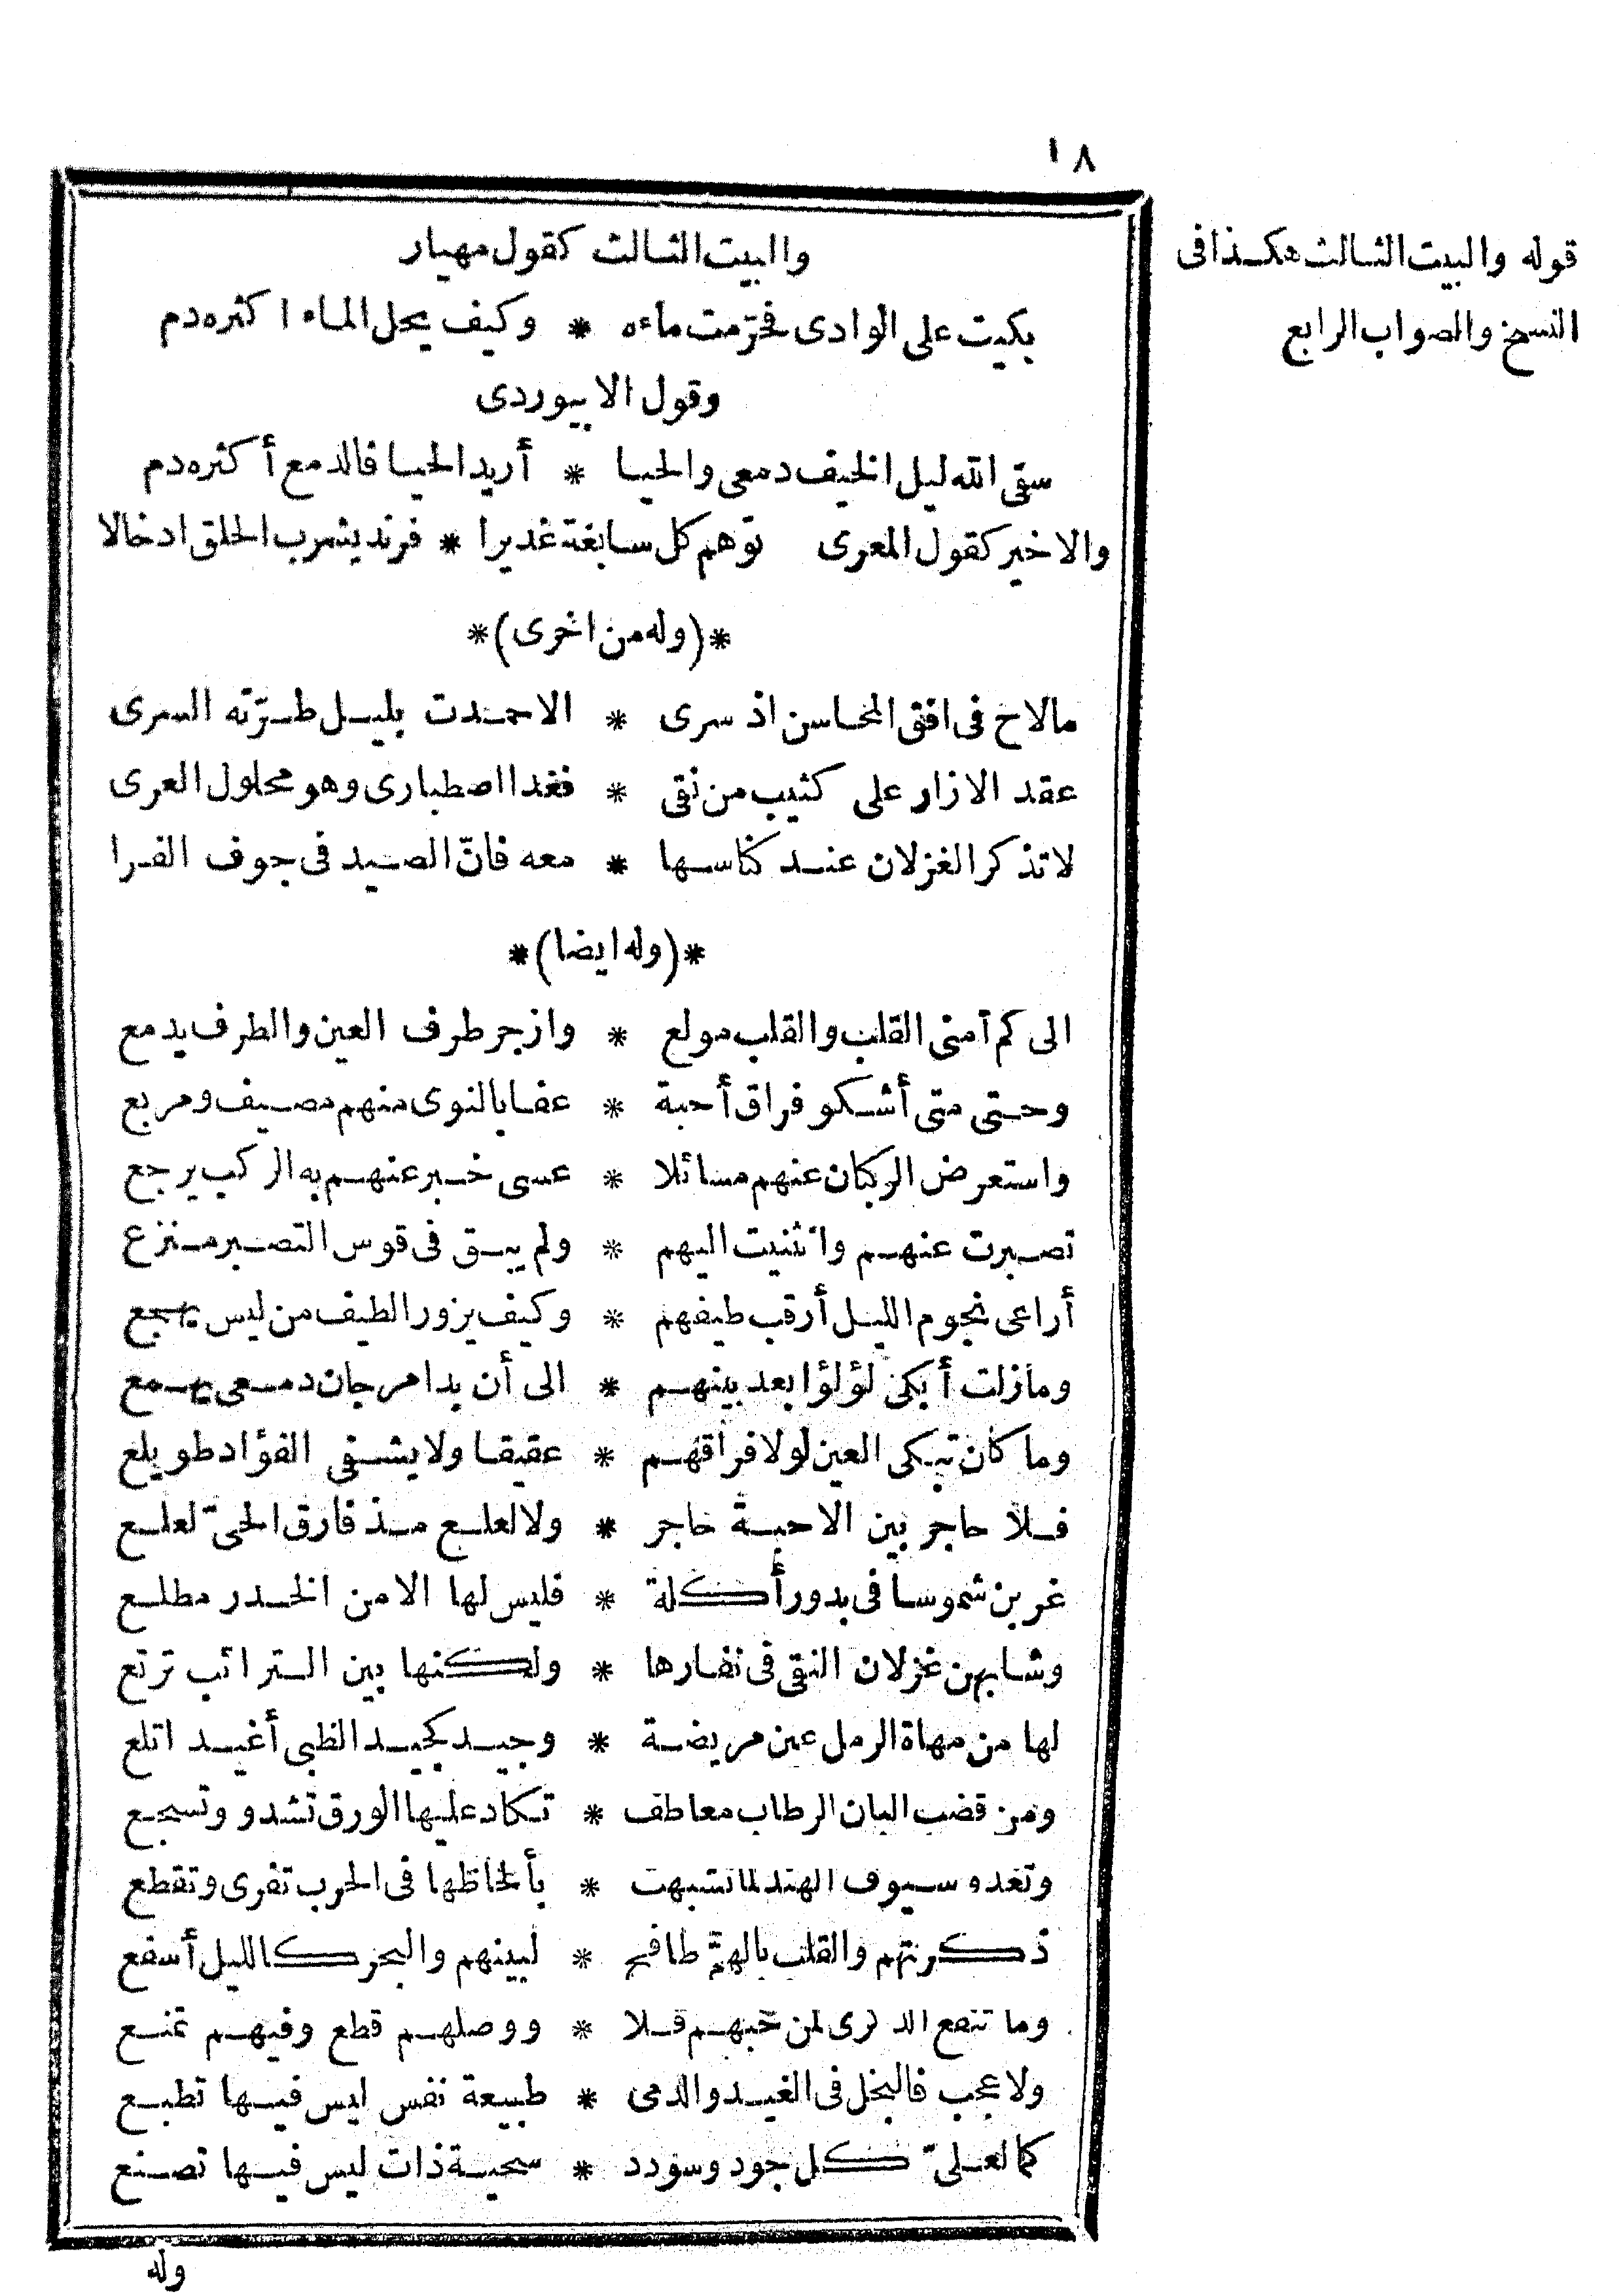 ١٨
والبيت الثالث كقول مهيار
بكيت على الوادى فحرّمت ماءه * وكيف يحل الماء اكثره دم
وقول الابيوردى
سقى الله ليل الخيف دمعى والحيا * أريد الحيا فالدمع أكثره دم
والاخير كقول المعرى توّهم كل سابغة غديرا * فرند يشرب الحلق ادخالا
*(وله من اخرى)*
مالاح فى افق المحاسن اذ سرى * الاحمدت بليل طرّته السرى
عقد الازار على كثيب من نقى * فغدا اصطبارى وهو محلول العرى
لاتذكر الغزلان عند كناسها * معه فانّ الصيد فى جوف الفرا
*(وله ايضا)*
الى كم أمنى القلب والقلب مولع * وازجر طرف العين والطرف يدمع
وحتى متى أشكو فراق أحبة * عفا بالنوى منهم مصيف ومربع
واستعرض الركبان عنهم مسائلا * عسى خبر عنهم به الركب يرجع
تصبرت عنهم وانثنيت اليهم * ولم يبق فى قوس التصبر منزع
أراعى نجوم الليل أرقب طيفهم * وكيف يزور الطيف من ليس يهجع
ومازلت أبكى لؤلؤا بعد بينهم * الى أن بدا مرجان دمعى يهمع
وما كان تبكى العين لولا فراقهم * عقيقا ولا يشفى الفؤاد طويلع
فلا حاجر بين الاحبة حاجر * ولا لعلع مذ فارق الحىّ لعلع
غربن شموسا فى بدور أكلة * فليس لها الا من الخدر مطلع
وشابهن غزلان النقى فى نفارها * ولكنها بين الترائب ترتع
لها من مهاة الرمل عين مريضة * وجيد كجيد الظبى أغيد اتلع
ومن قضب البان الرطاب معاطف * تكاد عليها الورق تشدو وتسجع
وتغدو سيوف الهند لما تشبهت * بألحاظها فى الحرب تفرى وتقطع
ذكرتهم والقلب بالهمّ طافح * لبينهم والبحر كالليل أسفع
وما تنفع الذكرى لمن حبهم قلا * ووصلهم قطع وفيهم تمنع
ولا عجب فالبخل فى الغيد والدمى * طبيعة نفس ليس فيها تطبع
كما لعلىّ كل جود وسودد * سجية ذات ليس فيها تصنع
وله
قوله والبيت الثالث هكذا فى
النسخ والصواب الرابع